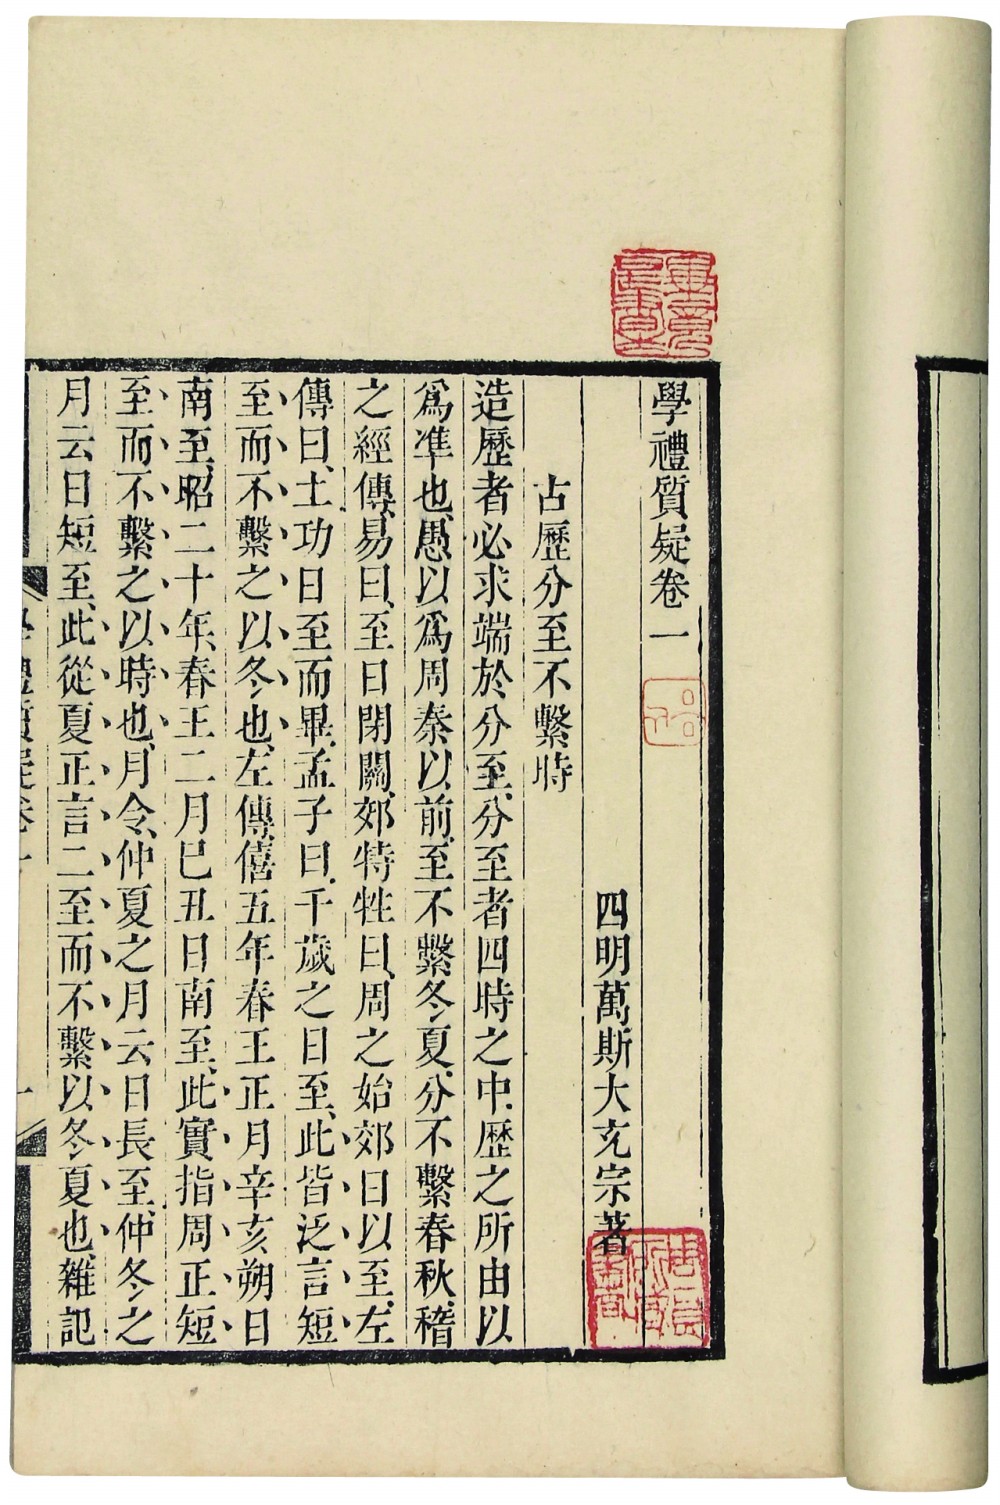 學禮質疑卷一
四明萬斯大充宗著
古歷分至不繫時
造歷者必求端於分至分至者四時之中歷之所由以
爲準也愚以爲周秦以前至不繫冬夏分不繫春秋稽
之經傳易曰至日閉關郊特牲曰周之始郊日以至左
傳曰土功日至而畢孟子曰千歲之日至此皆泛言短
至而不繫之以冬也左傳僖五年春王正月辛亥朔日
南至昭二十年春王二月巳丑日南至此實指周正短
至而不繫之以時也月令仲夏之月云日長至仲冬之
月云日短至此從夏正言二至而不繫以冬夏也雜記